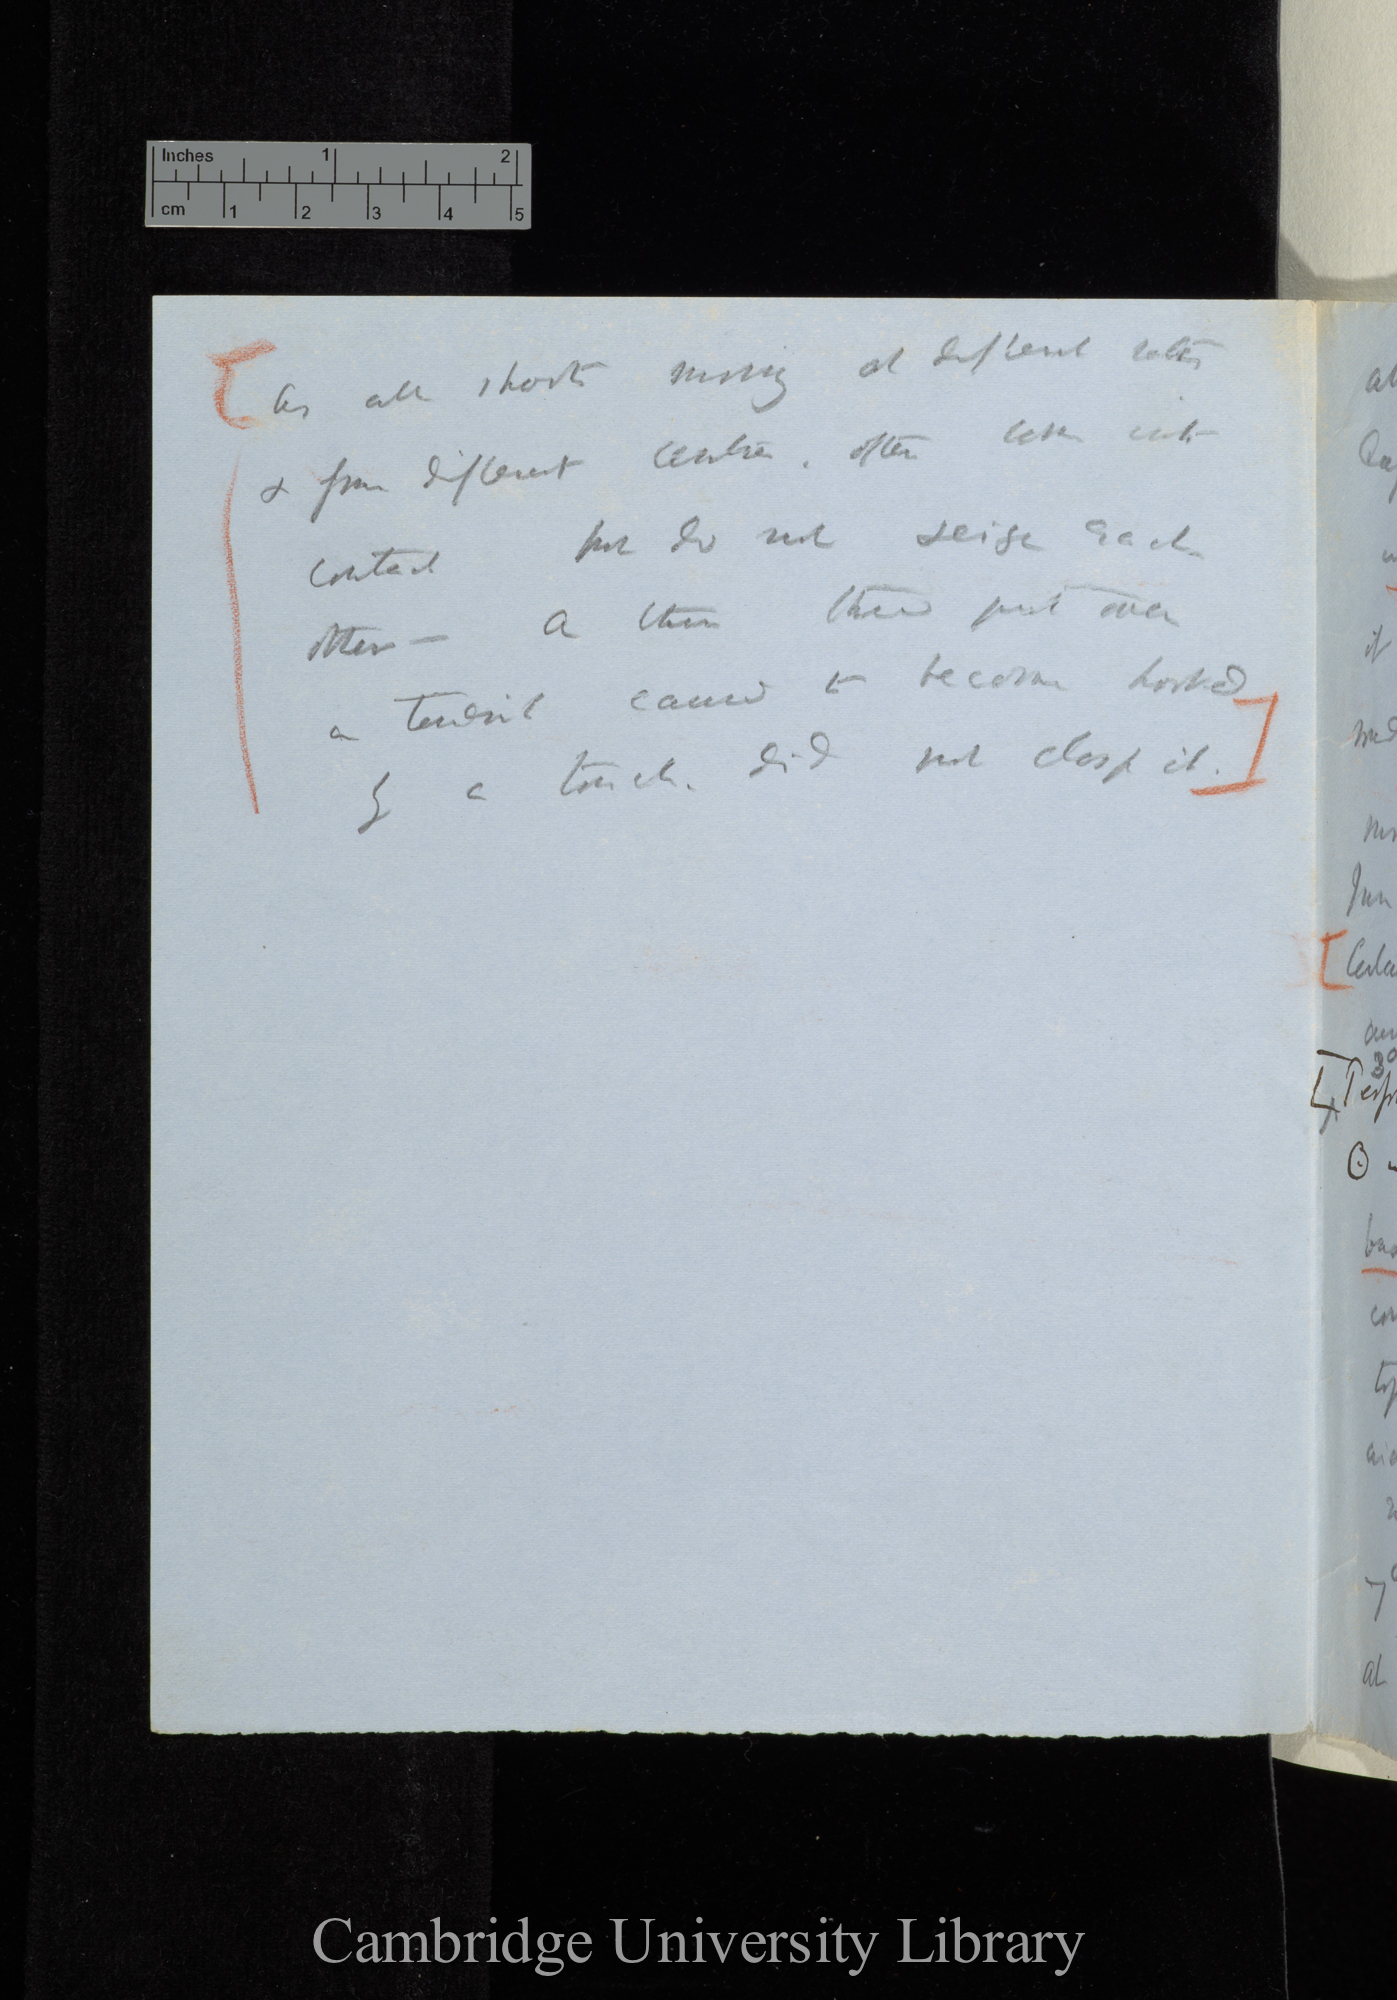 Inches 1 2
cm 1 2 3 4 5
[As all shoots moving at different rates
& from different centres, often come into
contact but do not seize each
other — A thin thread put over
a tendril caused to become hooked
by a touch, did not clasp it.]
Cambridge University Library